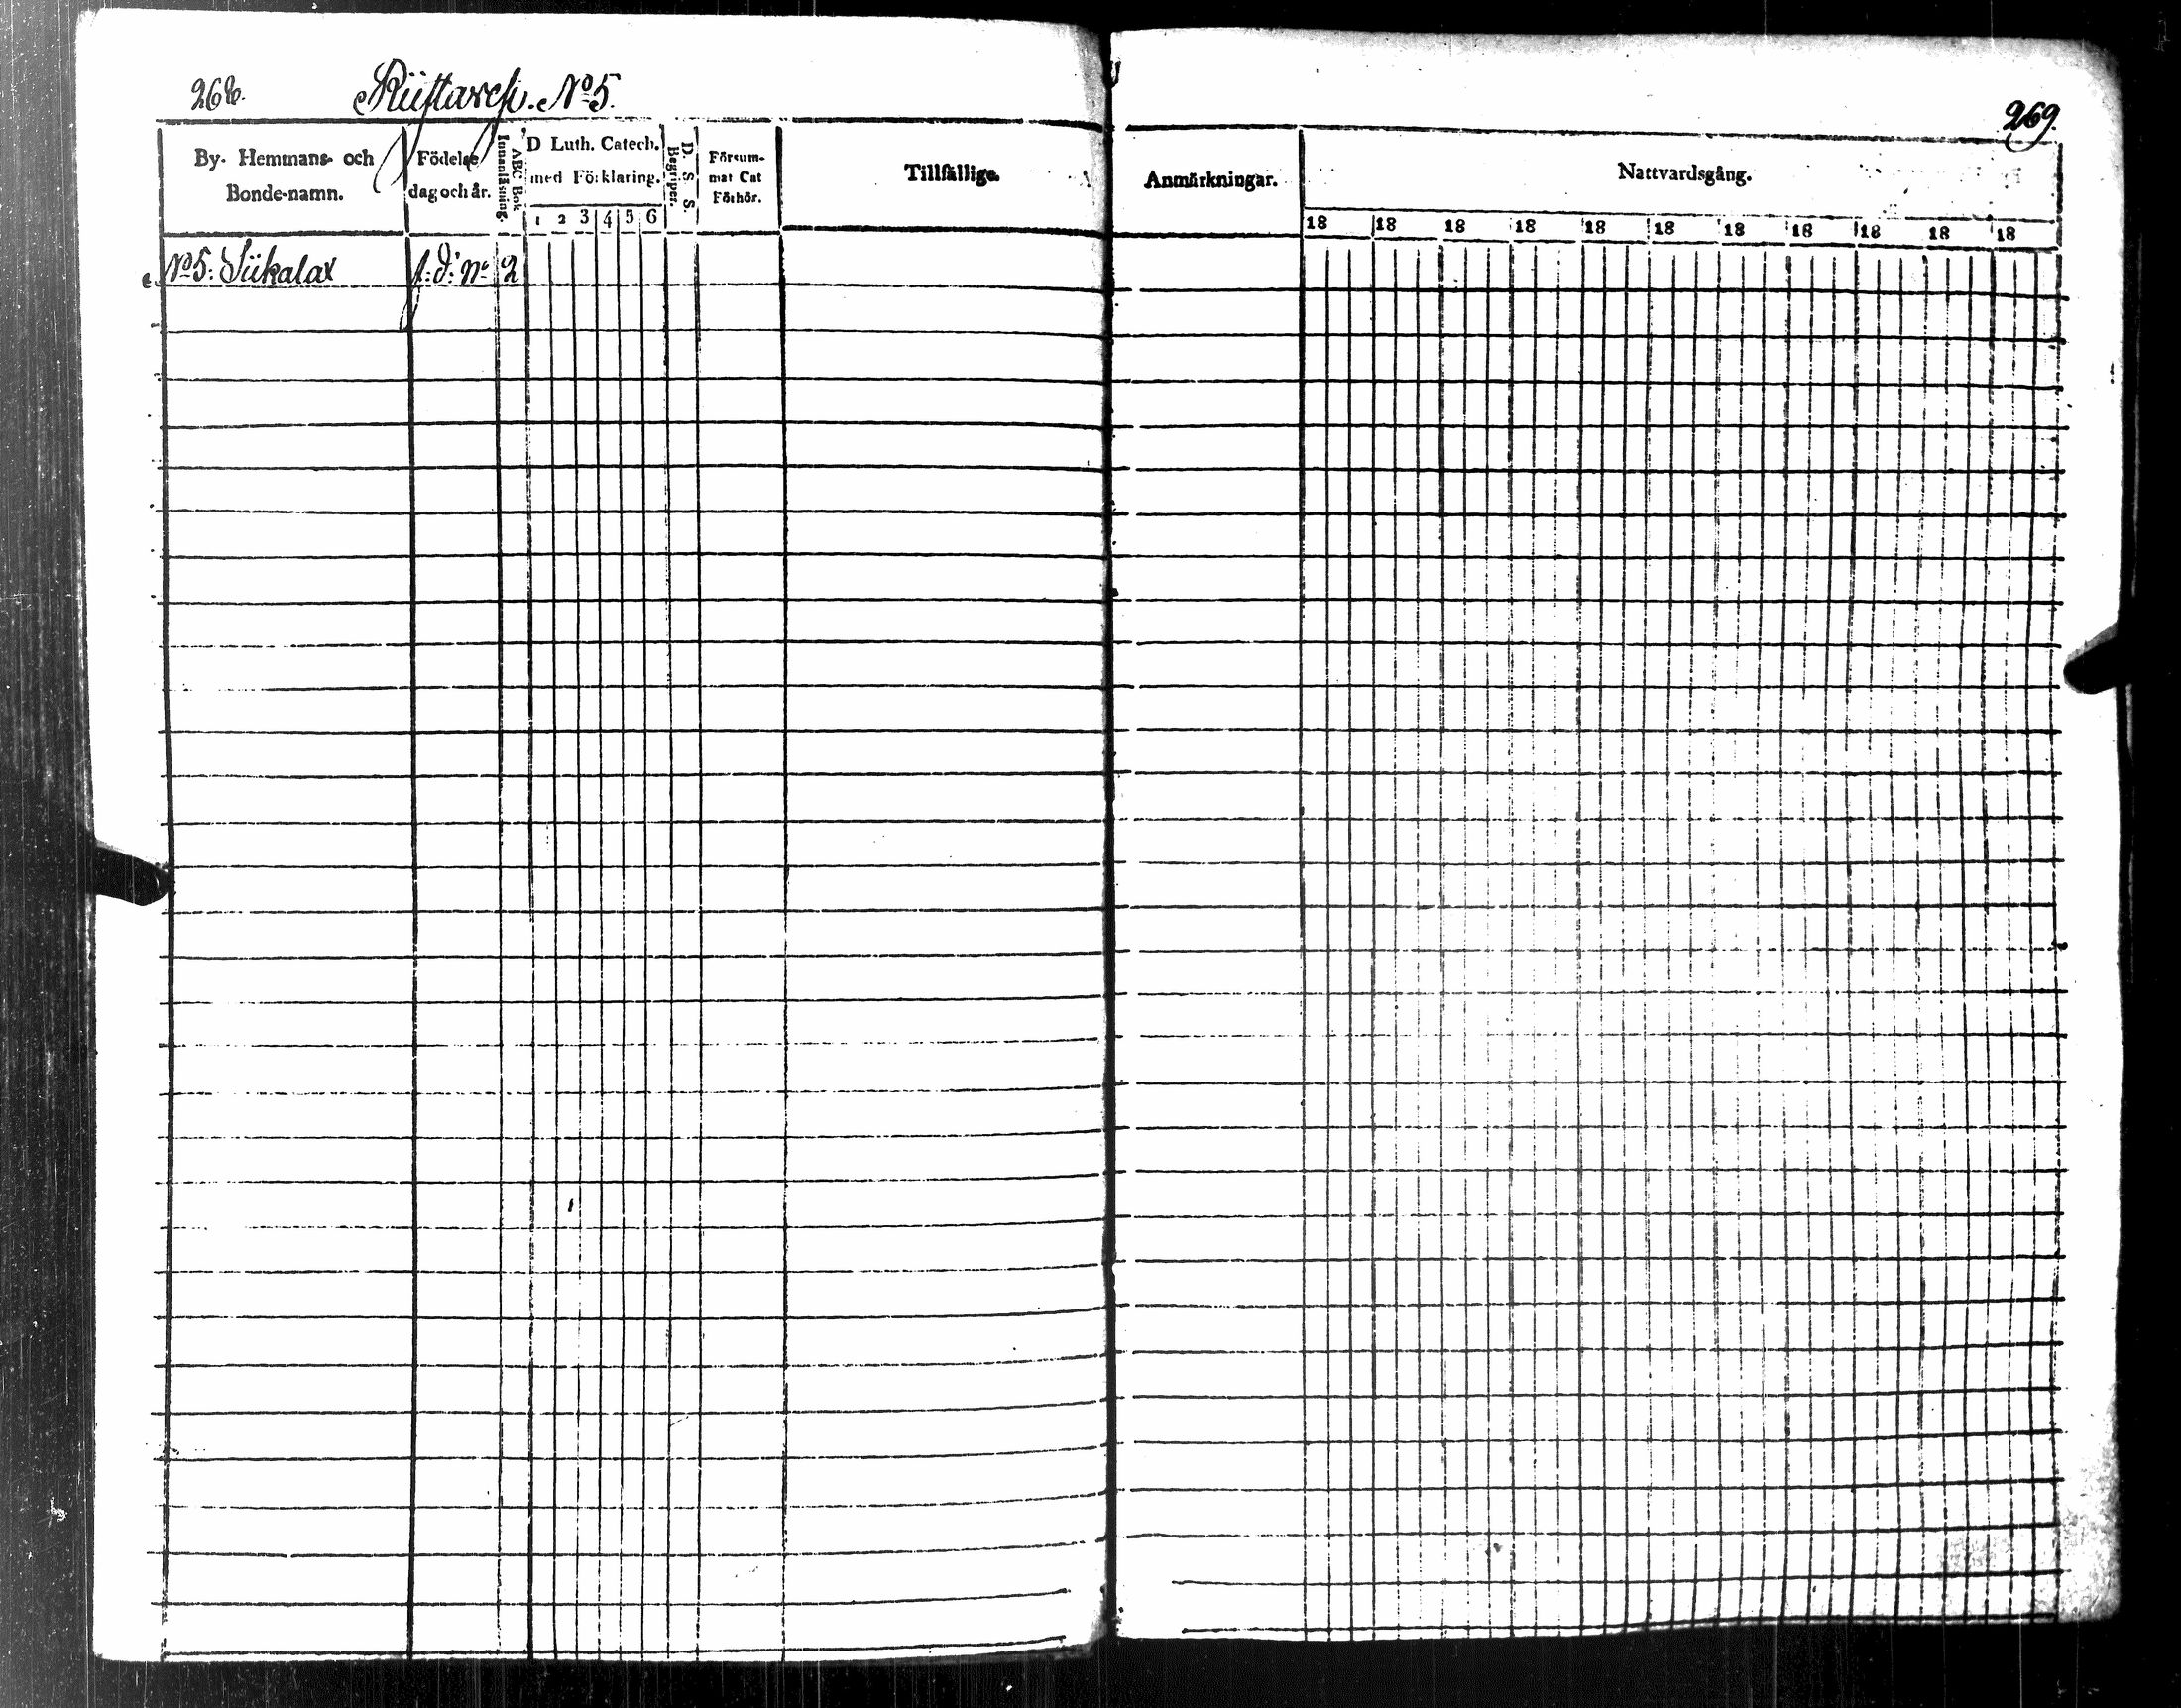 268. Riistavesi. No 5.
269.
By- Hemmans- och
Bonde-namn.
Födelse
dag och år.
ABC Bok
Innanläsning.
D Luth. Catech.
med Förklaring.
1 2 3 4 5 6
D. S. S.
Begriper.
Försum-
mat Cat
Förhör.
Tillfällige
Anmärkningar.
Nattvardsgång.
18 18 18 18 18 18 18 18 18 18 18
No 5. Siikalax f. d. No 2